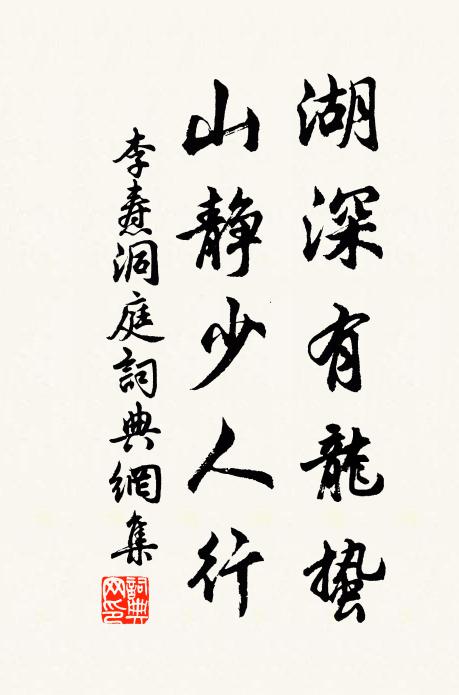 湖深有龍蟄
山静少人行
李焘洞庭詞典網集
詞典网印